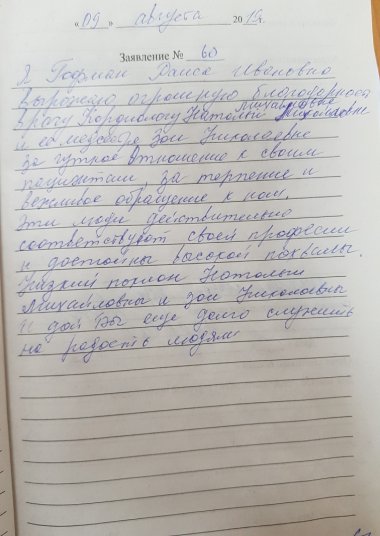 «09» августа 2019г.
Заявление № 60
Я Гофман Раиса Ивановна
выражаю огромную благодарность
врачу Натальи Михайловне
и её медсестре Зои Николаевне
за чуткое отношение к своим
пациентам, за терпение и
вежливое обращение к нам.
Эти люди действительно
соответствуют своей професии
и достойны высокой похвалы.
Низкий поклон Натальи
Михайловны и Зои Николаевны
и дай Бы еще долго служить
на радость людям